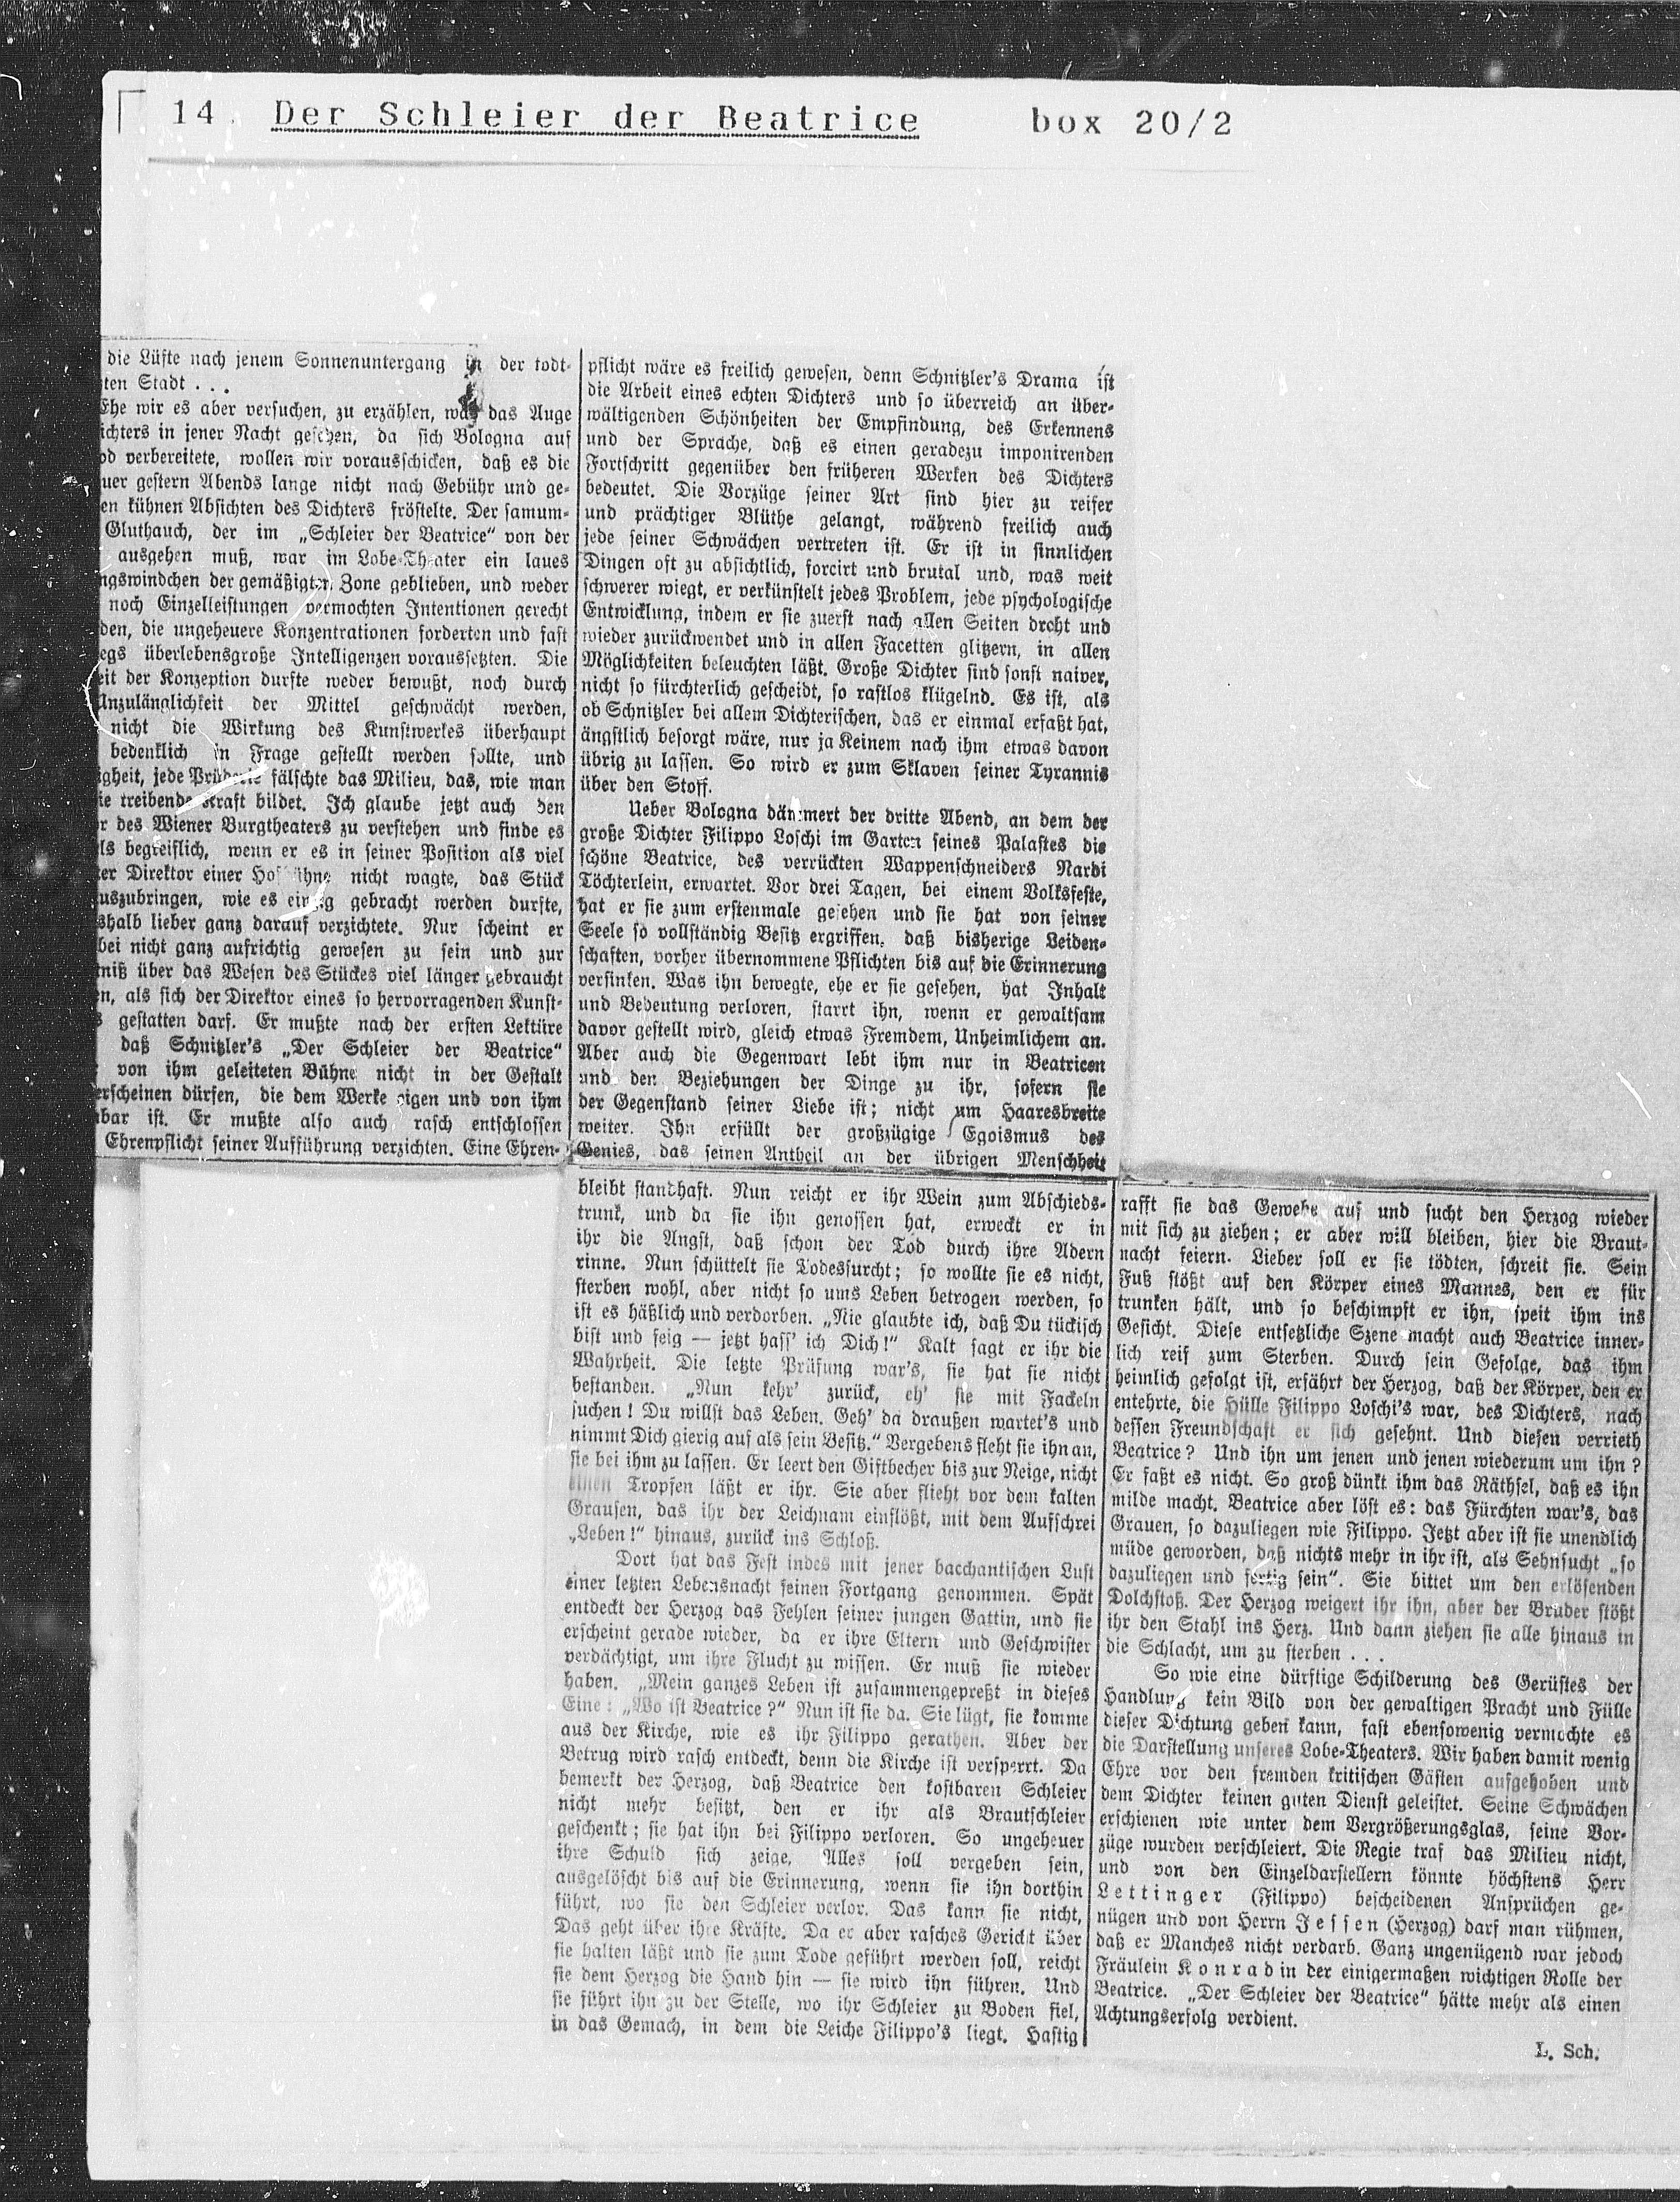 14. Der Schleier der Beatrice box 20/2
die Lüfte nach jenem Sonnenuntergang in der todt-
ten Stadt . . .
Ehe wir es aber versuchen, zu erzählen, was das Auge
ichters in jener Nacht gesehen, da sich Bologna auf
od verbereitete, wollen wir vorausschicken, daß es die
uer gestern Abends lange nicht nach Gebühr und ge-
en kühnen Absichten des Dichters fröstelte. Der samum-
Gluthauch, der im „Schleier der Beatrice“ von der
ausgehen muß, war im Lobe-Theater ein laues
ngswindchen der gemäßigten Zone geblieben, und weder
noch Einzelleistungen vermochten Intentionen gerecht
den, die ungeheuere Konzentrationen forderten und fast
egs überlebensgroße Intelligenzen voraussetzten. Die
eit der Konzeption durfte weder bewußt, noch durch
Unzulänglichkeit der Mittel geschwächt werden,
nicht die Wirkung des Kunstwerkes überhaupt
bedenklich in Frage gestellt werden sollte, und
igheit, jede Prüderie fälschte das Milieu, das, wie man
ie treibende Kraft bildet. Ich glaube jetzt auch den
r des Wiener Burgtheaters zu verstehen und finde es
ls begreiflich, wenn er es in seiner Position als viel
ter Direktor einer Hofbühne nicht wagte, das Stück
uszubringen, wie es einzig gebracht werden durfte,
shalb lieber ganz darauf verzichtete. Nur scheint er
bei nicht ganz aufrichtig gewesen zu sein und zur
tniß über das Wesen des Stückes viel länger gebraucht
en, als sich der Direktor eines so hervorragenden Kunst-
s gestatten darf. Er mußte nach der ersten Lektüre
daß Schnitzler's „Der Schleier der Beatrice“
von ihm geleiteten Bühne nicht in der Gestalt
erscheinen dürfen, die dem Werke eigen und von ihm
bar ist. Er mußte also auch rasch entschlossen
Ehrenpflicht seiner Aufführung verzichten. Eine Ehren-
pflicht wäre es freilich gewesen, denn Schnitzler's Drama ist
die Arbeit eines echten Dichters und so überreich an über-
wältigenden Schönheiten der Empfindung, des Erkennens
und der Sprache, daß es einen geradezu imponirenden
Fortschritt gegenüber den früheren Werken des Dichters
bedeutet. Die Vorzüge seiner Art sind hier zu reifer
und prächtiger Blüthe gelangt, während freilich auch
jede seiner Schwächen vertreten ist. Er ist in sinnlichen
Dingen oft zu absichtlich, forcirt und brutal und, was weit
schwerer wiegt, er verkünstelt jedes Problem, jede psychologische
Entwicklung, indem er sie zuerst nach allen Seiten dreht und
wieder zurückwendet und in allen Facetten glitzern, in allen
Möglichkeiten beleuchten läßt. Große Dichter sind sonst naiver,
nicht so fürchterlich gescheidt, so rastlos klügelnd. Es ist, als
ob Schnitzler bei allem Dichterischen, das er einmal erfaßt hat,
ängstlich besorgt wäre, nur ja Keinem nach ihm etwas davon
übrig zu lassen. So wird er zum Sklaven seiner Tyrannis
über den Stoff.
Ueber Bologna dämmert der dritte Abend, an dem der
große Dichter Filippo Loschi im Garten seines Palastes die
schöne Beatrice, des verrückten Wappenschneiders Nardi
Töchterlein, erwartet. Vor drei Tagen, bei einem Volksfeste,
hat er sie zum erstenmale gesehen und sie hat von seiner
Seele so vollständig Besitz ergriffen, daß bisherige Leiden-
schaften, vorher übernommene Pflichten bis auf die Erinnerung
versinken. Was ihn bewegte, ehe er sie gesehen, hat Inhalt
und Bedeutung verloren, starrt ihn, wenn er gewaltsam
davor gestellt wird, gleich etwas Fremdem, Unheimlichem an.
Aber auch die Gegenwart lebt ihm nur in Beatricen
und den Beziehungen der Dinge zu ihr, sofern sie
der Gegenstand seiner Liebe ist; nicht um Haaresbreite
weiter. Ihn erfüllt der großzügige Egoismus des
Genies, das seinen Antheil an der übrigen Menschheit
bleibt standhaft. Nun reicht er ihr Wein zum Abschieds-
trunk, und da sie ihn genossen hat, erweckt er in
ihr die Angst, daß schon der Tod durch ihre Adern
rinne. Nun schüttelt sie Todesfurcht; so wollte sie es nicht,
sterben wohl, aber nicht so ums Leben betrogen werden, so
ist es häßlich und verdorben. „Nie glaubte ich, daß Du tückisch
bist und feig — jetzt hass' ich Dich!“ Kalt sagt er ihr die
Wahrheit. Die letzte Prüfung war's, sie hat sie nicht
bestanden. „Nun kehr' zurück, eh' sie mit Fackeln
suchen! Du willst das Leben. Geh' da draußen wartet's und
nimmt Dich gierig auf als sein Besitz.“ Vergebens fleht sie ihn an,
sie bei ihm zu lassen. Er leert den Giftbecher bis zur Neige, nicht
einen Tropfen läßt er ihr. Sie aber flieht vor dem kalten
Grausen, das ihr der Leichnam einflößt, mit dem Aufschrei
„Leben!“ hinaus, zurück ins Schloß.
Dort hat das Fest indes mit jener bacchantischen Lust
einer letzten Lebensnacht seinen Fortgang genommen. Spät
entdeckt der Herzog das Fehlen seiner jungen Gattin, und sie
erscheint gerade wieder, da er ihre Eltern und Geschwister
verdächtigt, um ihre Flucht zu wissen. Er muß sie wieder
haben. „Mein ganzes Leben ist zusammengepreßt in dieses
Eine: „Wo ist Beatrice?“ Nun ist sie da. Sie lügt, sie komme
aus der Kirche, wie es ihr Filippo gerathen. Aber der
Betrug wird rasch entdeckt, denn die Kirche ist versperrt. Da
bemerkt der Herzog, daß Beatrice den kostbaren Schleier
nicht mehr besitzt, den er ihr als Brautschleier
geschenkt; sie hat ihn bei Filippo verloren. So ungeheuer
ihre Schuld sich zeige, Alles soll vergeben sein,
ausgelöscht bis auf die Erinnerung, wenn sie ihn dorthin
führt, wo sie den Schleier verlor. Das kann sie nicht,
Das geht über ihre Kräfte. Da er aber rasches Gericht über
sie halten läßt und sie zum Tode geführt werden soll, reicht
sie dem Herzog die Hand hin — sie wird ihn führen. Und
sie führt ihn zu der Stelle, wo ihr Schleier zu Boden fiel,
in das Gemach, in dem die Leiche Filippo's liegt. Hastig
rafft sie das Gewebe auf und sucht den Herzog wieder
mit sich zu ziehen; er aber will bleiben, hier die Braut-
nacht feiern. Lieber soll er sie tödten, schreit sie. Sein
Fuß stößt auf den Körper eines Mannes, den er für
trunken hält, und so beschimpft er ihn, speit ihm ins
Gesicht. Diese entsetzliche Szene macht auch Beatrice inner-
lich reif zum Sterben. Durch sein Gefolge, das ihm
heimlich gefolgt ist, erfährt der Herzog, daß der Körper, den er
entehrte, die Hülle Filippo Loschi's war, des Dichters, nach
dessen Freundschaft er sich gesehnt. Und diesen verrieth
Beatrice? Und ihn um jenen und jenen wiederum um ihn?
Er faßt es nicht. So groß dünkt ihm das Räthsel, daß es ihn
milde macht. Beatrice aber löst es: das Fürchten war's, das
Grauen, so dazuliegen wie Filippo. Jetzt aber ist sie unendlich
müde geworden, daß nichts mehr in ihr ist, als Sehnsucht „so
dazuliegen und fertig sein“. Sie bittet um den erlösenden
Dolchstoß. Der Herzog weigert ihr ihn, aber der Bruder stößt
ihr den Stahl ins Herz. Und dann ziehen sie alle hinaus in
die Schlacht, um zu sterben . . .
So wie eine dürftige Schilderung des Gerüstes der
Handlung kein Bild von der gewaltigen Pracht und Fülle
dieser Dichtung geben kann, fast ebensowenig vermochte es
die Darstellung unseres Lobe-Theaters. Wir haben damit wenig
Ehre vor den fremden kritischen Gästen aufgehoben und
dem Dichter keinen guten Dienst geleistet. Seine Schwächen
erschienen wie unter dem Vergrößerungsglas, seine Vor-
züge wurden verschleiert. Die Regie traf das Milieu nicht,
und von den Einzeldarstellern könnte höchstens Herr
Lettinger (Filippo) bescheidenen Ansprüchen ge-
nügen und von Herrn Jessen (Herzog) darf man rühmen,
daß er Manches nicht verdarb. Ganz ungenügend war jedoch
Fräulein Konrad in der einigermaßen wichtigen Rolle der
Beatrice. „Der Schleier der Beatrice“ hätte mehr als einen
Achtungserfolg verdient.
L. Sch.